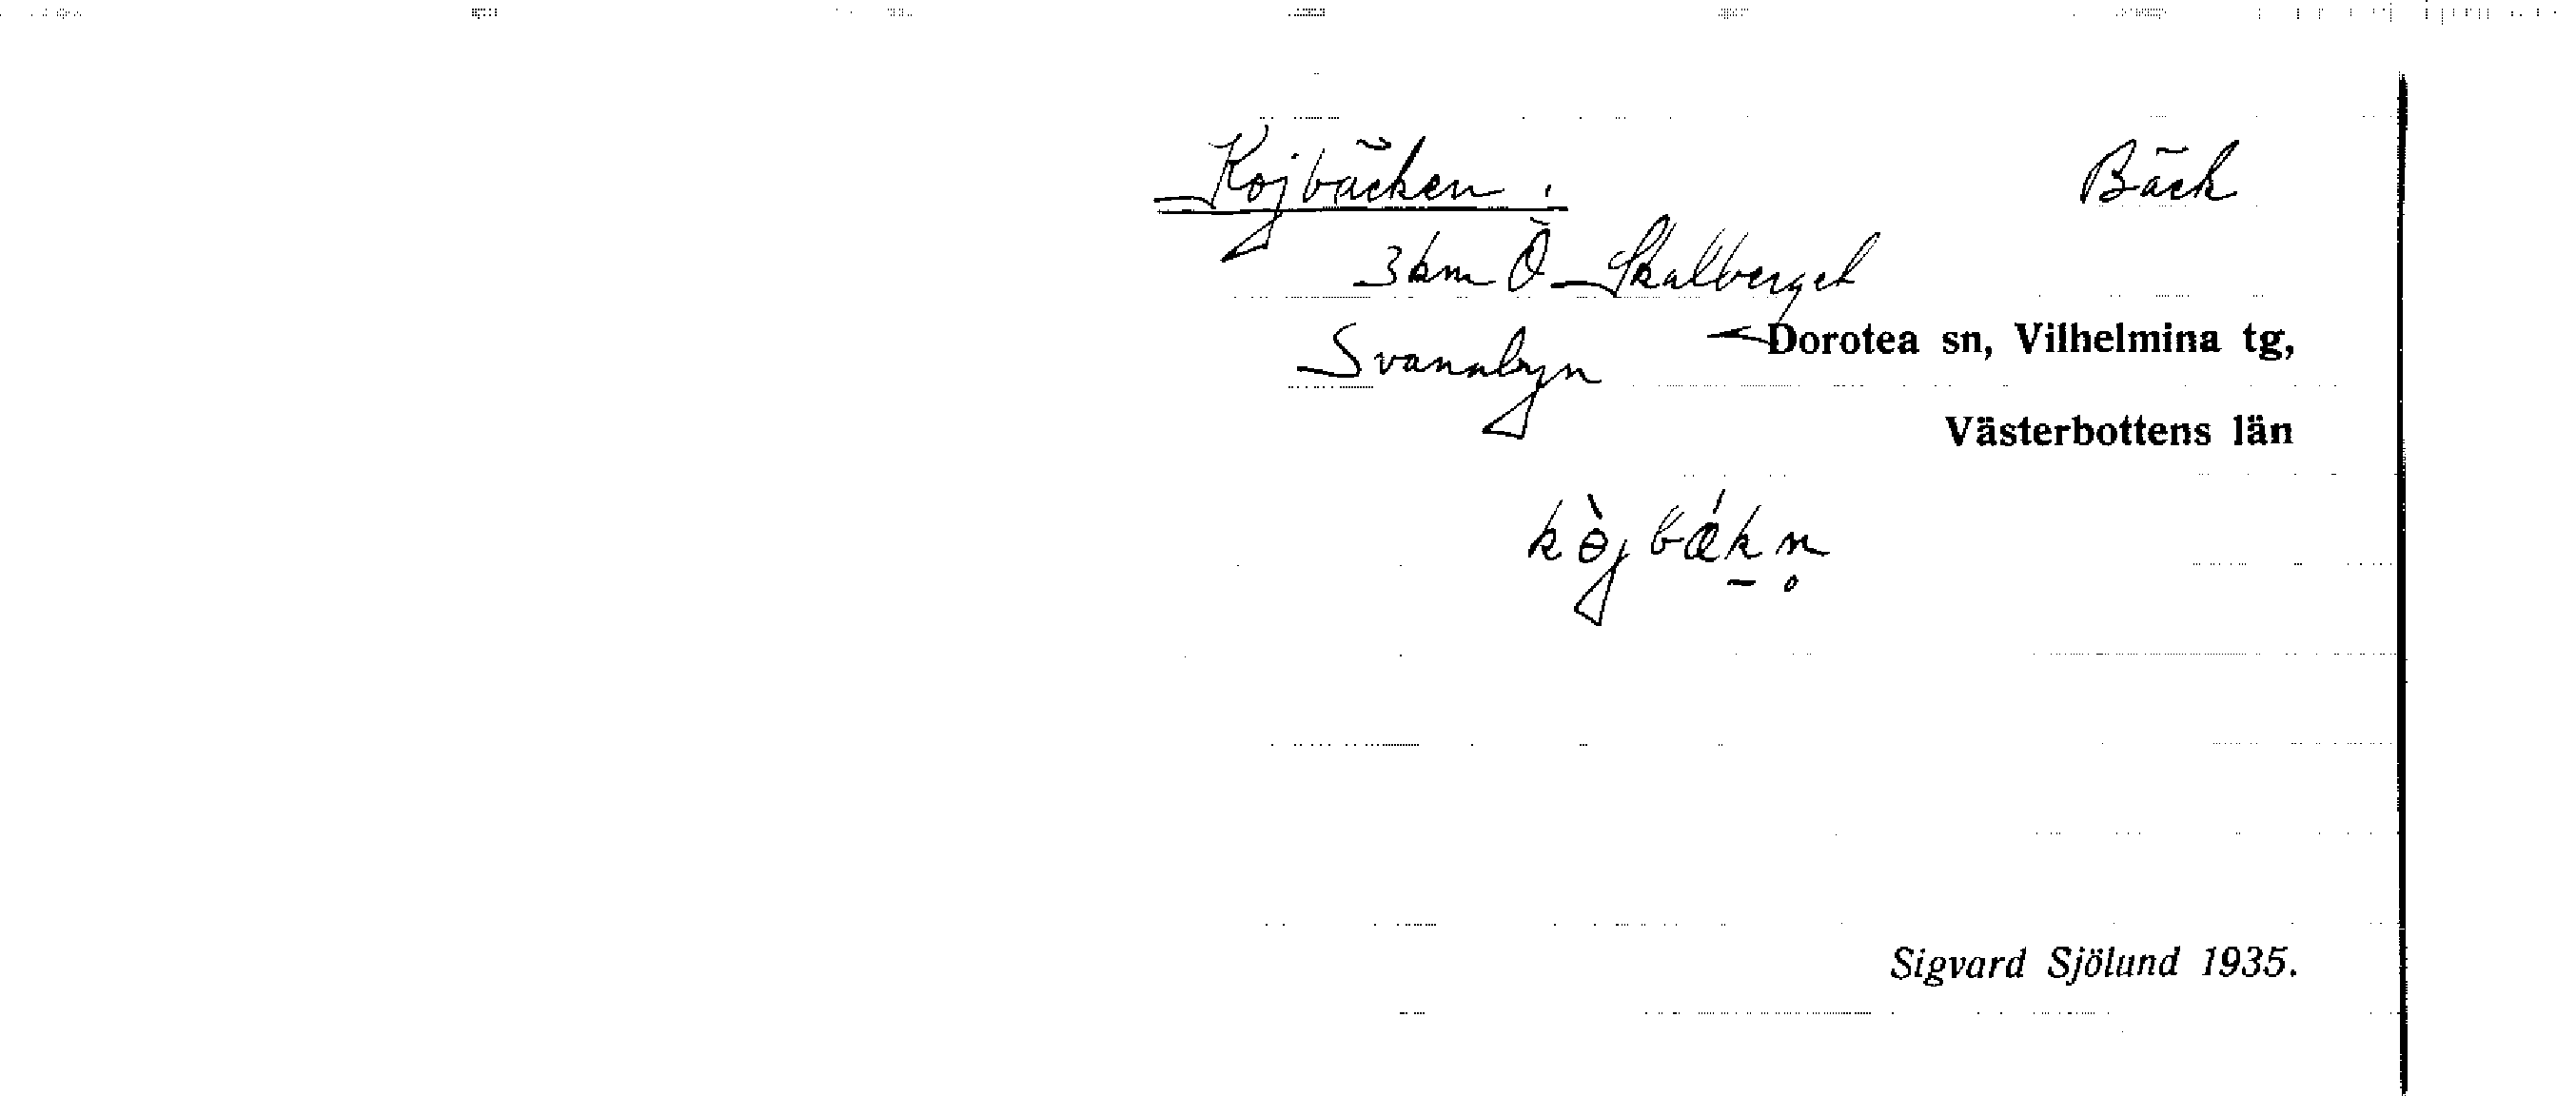 Kojbäcken. Bäck
3 km Ö Skalberget
Svanabyn Dorotea sn, Vilhelmina tg,
Västerbottens län
kɵ̀jbǽk̠n̥
Sigvard Sjölund 1935.